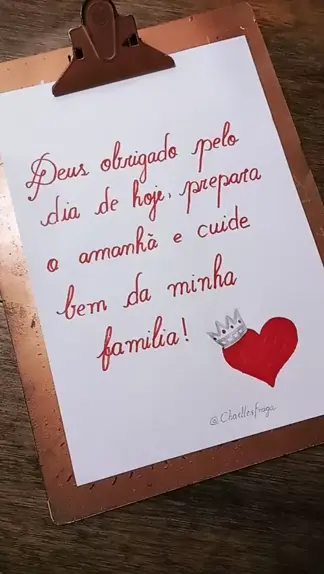 Deus obrigado pelo
dia de hoje, prepara
o amanhã e cuide
bem da minha
familia!
@CharllesFraga